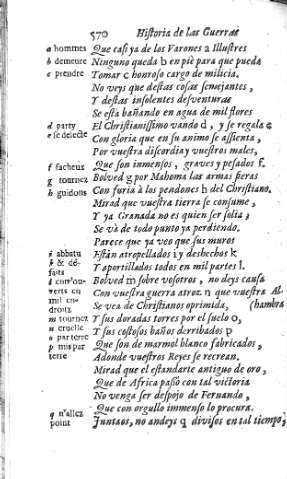 570 Historia de las Guerras
a hommes Que casi ya de los Varones a Illustres
b demeure Ninguno queda b en piè para que pueda
c prendre Tomar c honroso cargo de milicia.
No veys que destas cosas semejantes,
Y destas insolentes desventuras
Se està bañando en agua de mil flores
d party El Christianissimo vando d, y se regala e
e se delecte Con gloria que en su animo se assienta,
Por vuestra discordia y vuestros males,
f facheus Que son inmensos, graves y pesados f.
g tournez Bolved g por Mahoma las armas fieras
h guidons Con furia à los pendones h del Christiano.
Mirad que vuestra tierra se consume,
Y ya Granada no es quien ser solia;
Se và de todo punto ya perdiendo.
Parece que ya veo que sus muros
i abbatu Están atropellados i y deshechos k
k & dé- Y aportillados todos en mil partes l.
faits
l con'ou- Bolved m sobre vosotros, no deys causa
verts en Con vuestra guerra atroz n que vuestra Al-
mil en- Se vea de Christianos oprimida, (hambra
droits
m tournez Y sus doradas torres por el suelo o,
n cruelle Y sus costosos baños derribados p
o par terre Que son de marmol blanco fabricados,
p mis par Adonde vuestros Reyes se recrean.
terre
Mirad que el estandarte antiguo de oro,
Que de Africa passò con tal victoria
No venga ser despojo de Fernando,
Que con orgullo immenso lo procura.
q n'allez Juntaos, no andeys q divisos en tal tiempo,
point